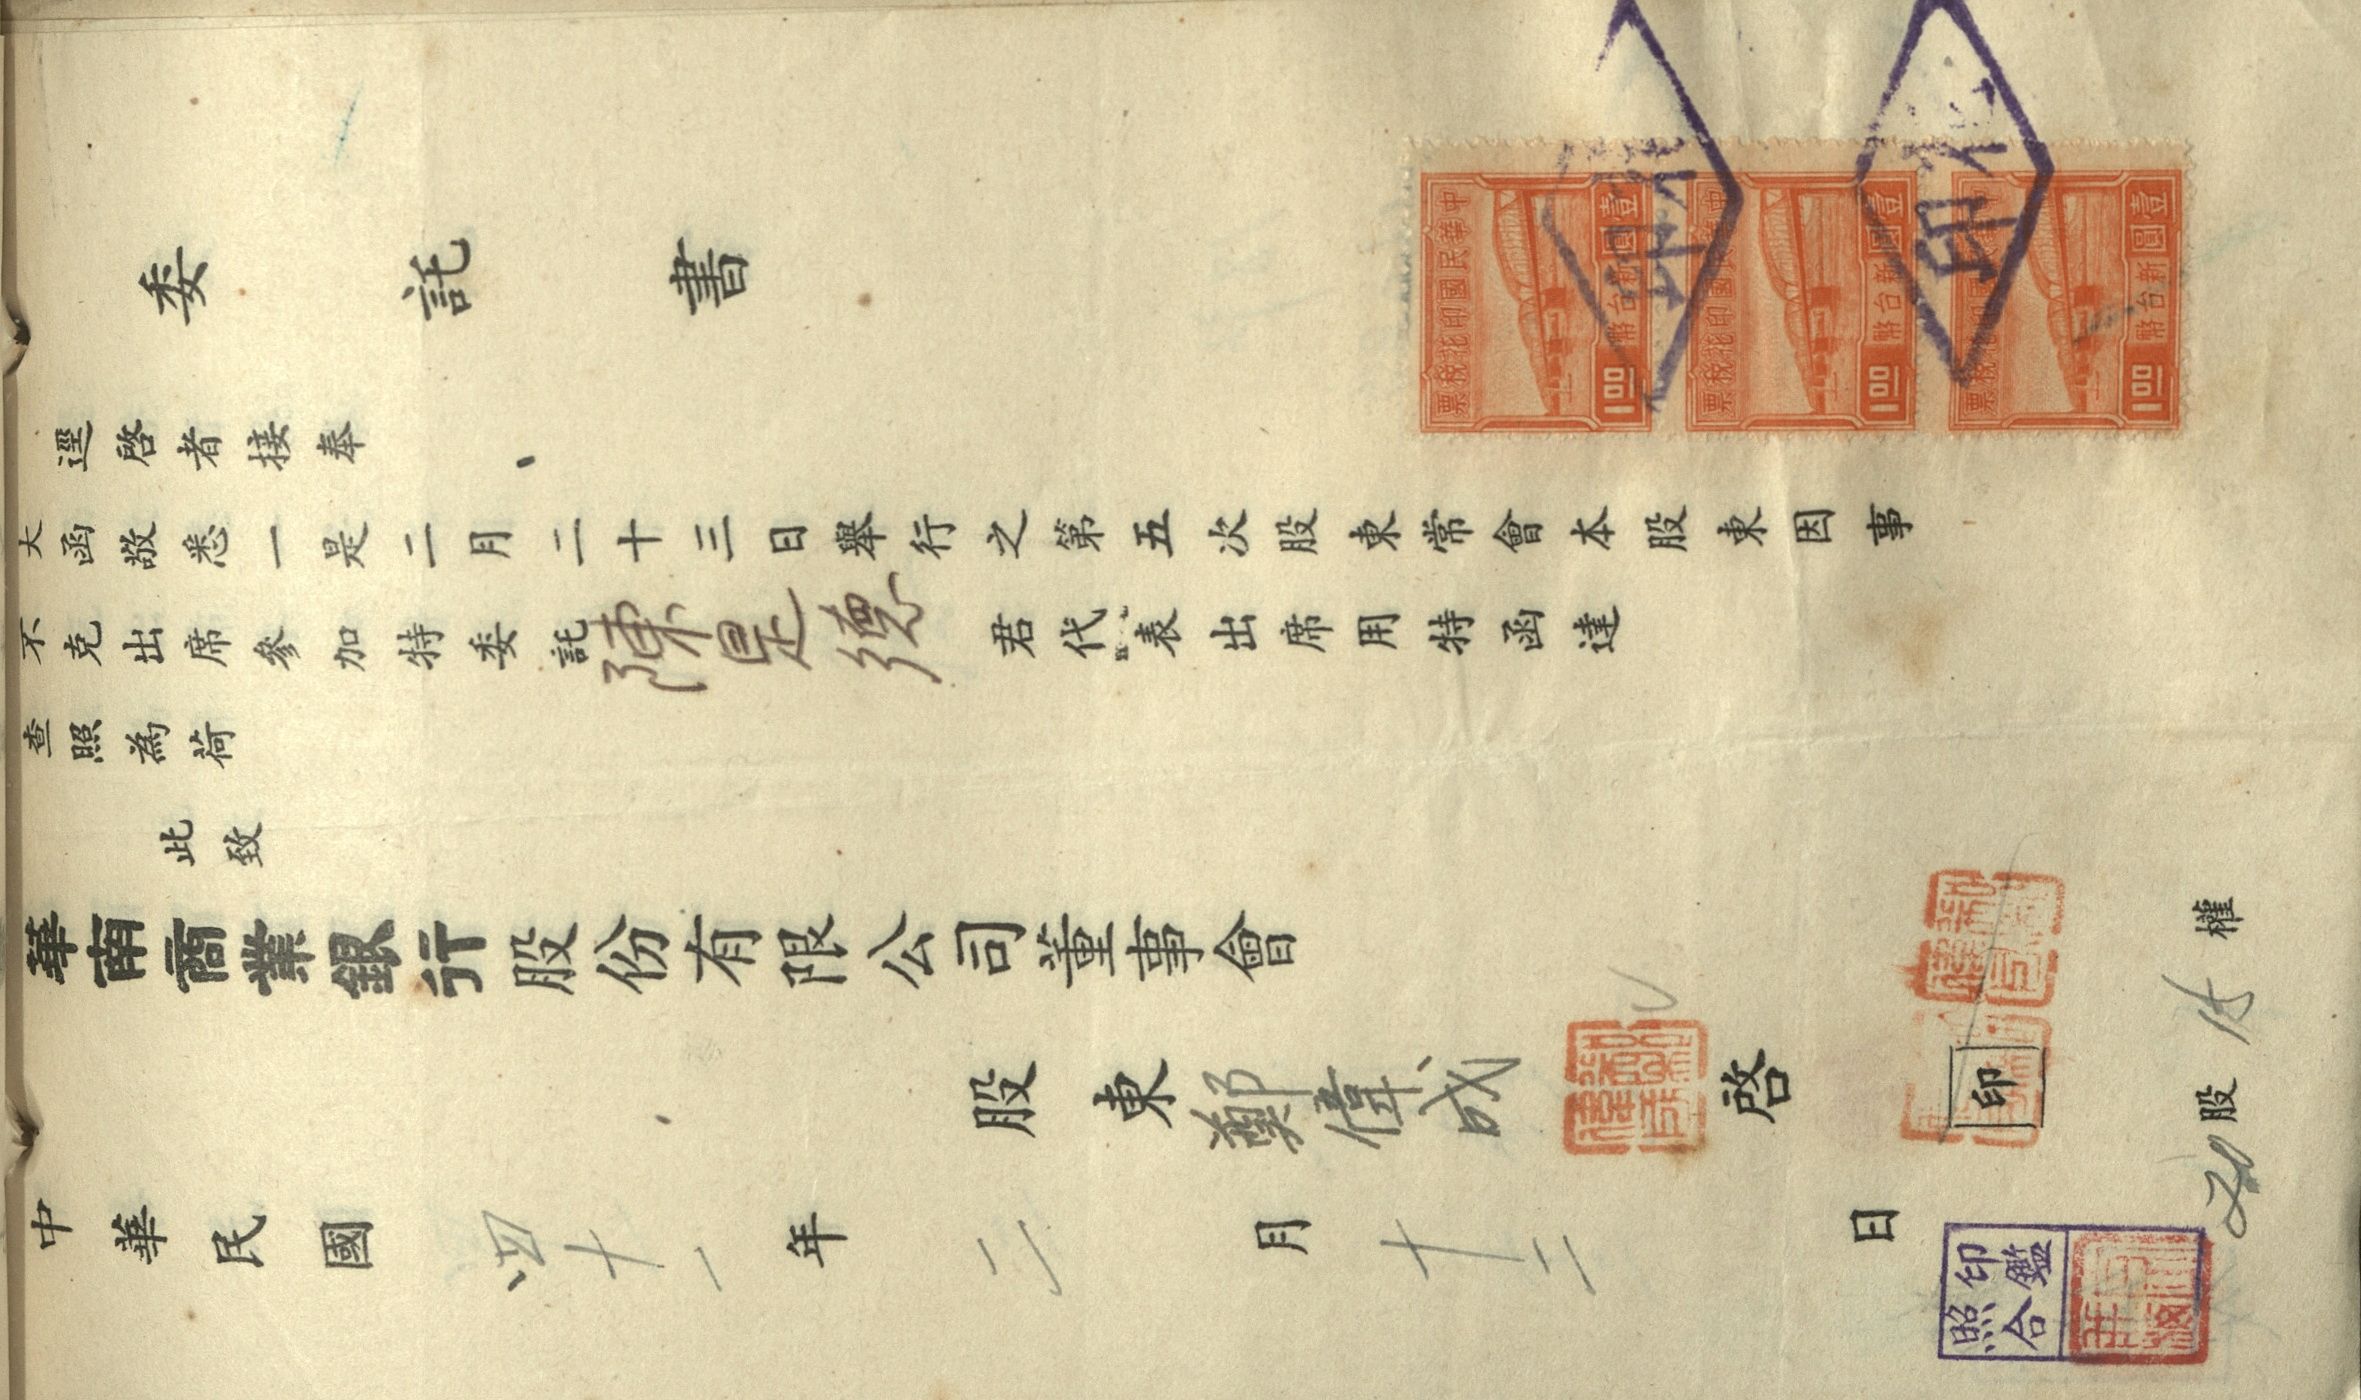 委託書
逕啓者接奉
大函敬悉一是二月二十三日舉行之第五次股東常會本股東因事
不克出席參加特委託陳是德君代表出席用特函達
查照為荷
此致
華南商業銀行股份有限公司董事會
股東鄭偉成啓
印
中華民國四十一年二月十二日
20股15權
印鑑
照合
中華民國印花稅票
壹圓新台幣
1.00
壹圓新台幣
1.00
壹圓新台幣
1.00